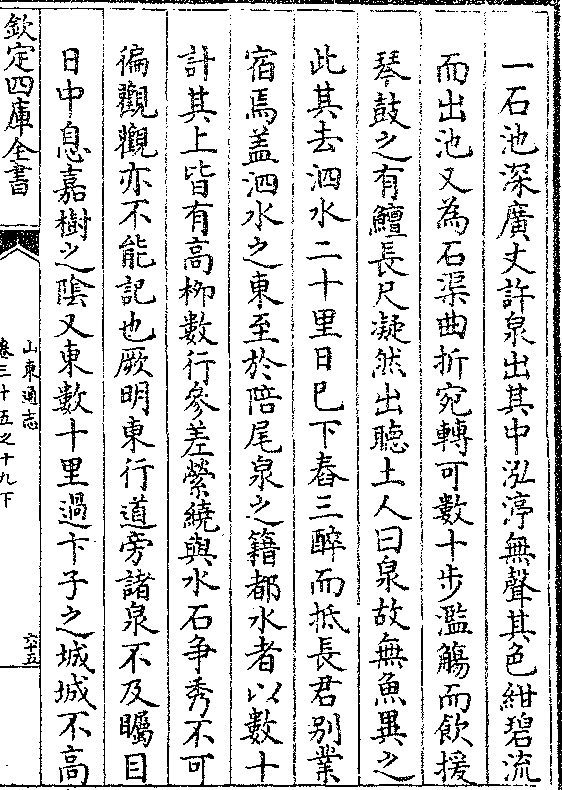 一石池深廣丈許泉出其中泓渟無聲其色紺碧流
而出池又為石渠曲折宛轉可數十步濫觴而飲援
琴鼓之有鱣長尺凝然出聽土人曰泉故無魚異之
此其去泗水二十里日已下舂三醉而抵長君別業
宿焉盖泗水之東至於陪尾泉之籍都水者以數十
計其上皆有高栁數行參差縈繞與水石争秀不可
徧觀觀亦不能記也厥明東行道旁諸泉不及矚目
日中息嘉樹之隂又東數十里過卞子之城城不高
欽定四庫全書
山東通志
卷三十五之十九下
六十五